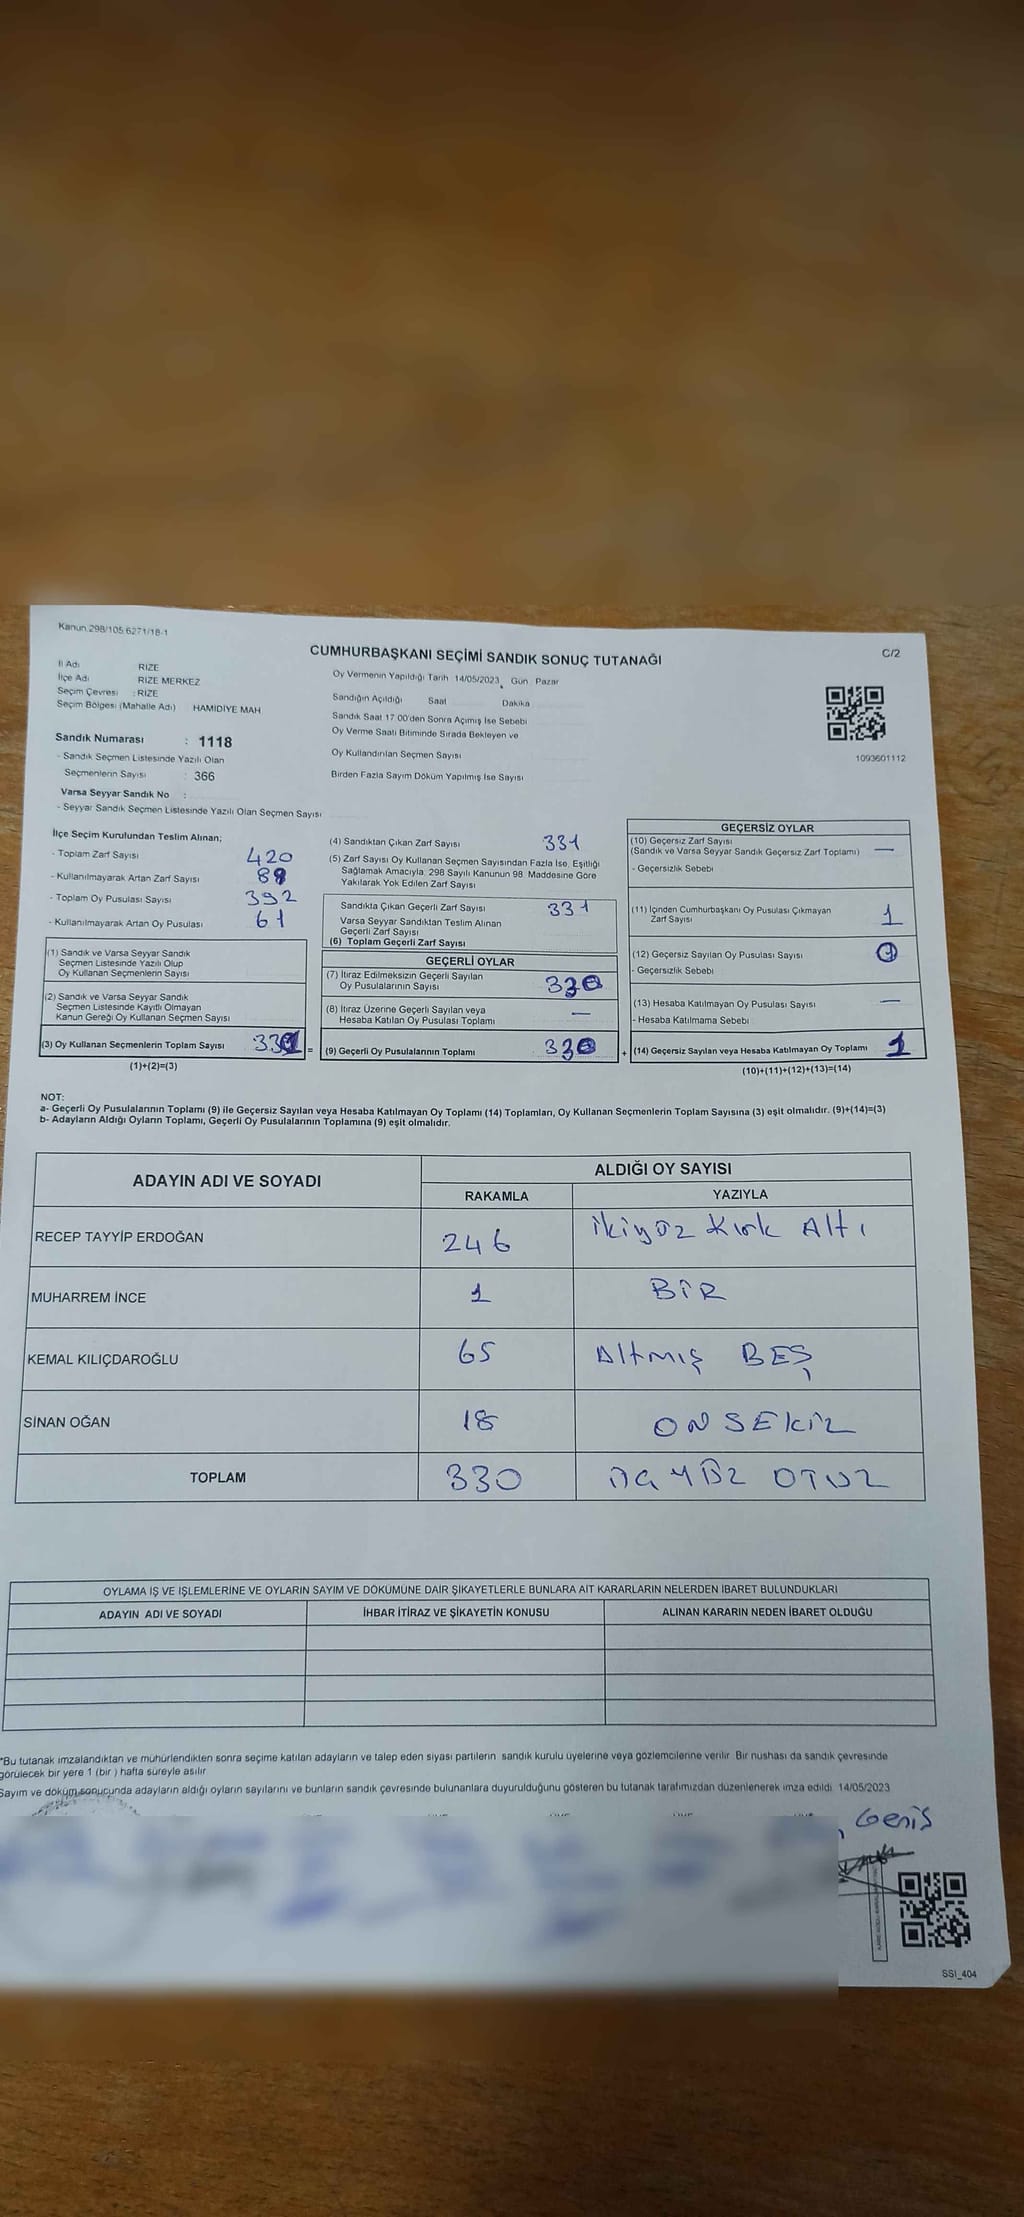 Kanun.298/105.6271/18-1
CUMHURBAŞKANI SEÇİMİ SANDIK SONUÇ TUTANAĞI
C/2
İl Adı RİZE
İlçe Adı RİZE MERKEZ
Seçim Çevresi : RİZE
Seçim Bölgesi (Mahalle Adı) HAMİDİYE MAH
Sandık Numarası : 1118
- Sandık Seçmen Listesinde Yazılı Olan
Seçmenlerin Sayısı : 366
Varsa Seyyar Sandık No :
- Seyyar Sandık Seçmen Listesinde Yazılı Olan Seçmen Sayısı
Oy Vermenin Yapıldığı Tarih 14/05/2023 Gün Pazar
Sandığın Açıldığı Saat Dakika
Sandık Saat 17.00'den Sonra Açımış İse Sebebi
Oy Verme Saati Bitiminde Sırada Bekleyen ve
Oy Kullandırılan Seçmen Sayısı
Birden Fazla Sayım Döküm Yapılmış İse Sayısı
1093601112
İlçe Seçim Kurulundan Teslim Alınan;
- Toplam Zarf Sayısı 420
- Kullanılmayarak Artan Zarf Sayısı 89
- Toplam Oy Pusulası Sayısı 392
- Kullanılmayarak Artan Oy Pusulası 61
(1) Sandık ve Varsa Seyyar Sandık
Seçmen Listesinde Yazılı Olup
Oy Kullanan Seçmenlerin Sayısı
(2) Sandık ve Varsa Seyyar Sandık
Seçmen Listesinde Kayıtlı Olmayan
Kanun Gereği Oy Kullanan Seçmen Sayısı
(3) Oy Kullanan Seçmenlerin Toplam Sayısı 331 =
(1)+(2)=(3)
(4) Sandıktan Çıkan Zarf Sayısı 331
(5) Zarf Sayısı Oy Kullanan Seçmen Sayısından Fazla İse, Eşitliği
Sağlamak Amacıyla, 298 Sayılı Kanunun 98. Maddesine Göre
Yakılarak Yok Edilen Zarf Sayısı
Sandıkta Çıkan Geçerli Zarf Sayısı 331
Varsa Seyyar Sandıktan Teslim Alınan
Geçerli Zarf Sayısı
(6) Toplam Geçerli Zarf Sayısı
GEÇERLİ OYLAR
(7) İtiraz Edilmeksizin Geçerli Sayılan
Oy Pusulalarının Sayısı 330
(8) İtiraz Üzerine Geçerli Sayılan veya
Hesaba Katılan Oy Pusulası Toplamı —
(9) Geçerli Oy Pusulalarının Toplamı 330 +
GEÇERSİZ OYLAR
(10) Geçersiz Zarf Sayısı
(Sandık ve Varsa Seyyar Sandık Geçersiz Zarf Toplamı) —
- Geçersizlik Sebebi
(11) İçinden Cumhurbaşkanı Oy Pusulası Çıkmayan
Zarf Sayısı 1
(12) Geçersiz Sayılan Oy Pusulası Sayısı
- Geçersizlik Sebebi
(13) Hesaba Katılmayan Oy Pusulası Sayısı —
- Hesaba Katılmama Sebebi
(14) Geçersiz Sayılan veya Hesaba Katılmayan Oy Toplamı 1
(10)+(11)+(12)+(13)=(14)
NOT:
a- Geçerli Oy Pusulalarının Toplamı (9) ile Geçersiz Sayılan veya Hesaba Katılmayan Oy Toplamı (14) Toplamları, Oy Kullanan Seçmenlerin Toplam Sayısına (3) eşit olmalıdır. (9)+(14)=(3)
b- Adayların Aldığı Oyların Toplamı, Geçerli Oy Pusulalarının Toplamına (9) eşit olmalıdır.
ADAYIN ADI VE SOYADI ALDIĞI OY SAYISI
RAKAMLA YAZIYLA
RECEP TAYYİP ERDOĞAN 246 ikiyüz Kırk Altı
MUHARREM İNCE 1 BİR
KEMAL KILIÇDAROĞLU 65 Altmış BEŞ
SİNAN OĞAN 18 ON SEKİZ
TOPLAM 330 ÜÇ YÜZ OTUZ
OYLAMA İŞ VE İŞLEMLERİNE VE OYLARIN SAYIM VE DÖKÜMÜNE DAİR ŞİKAYETLERLE BUNLARA AİT KARARLARIN NELERDEN İBARET BULUNDUKLARI
ADAYIN ADI VE SOYADI İHBAR İTİRAZ VE ŞİKAYETİN KONUSU ALINAN KARARIN NEDEN İBARET OLDUĞU
*Bu tutanak imzalandıktan ve mühürlendikten sonra seçime katılan adayların ve talep eden siyasi partilerin sandık kurulu üyelerine veya gözlemcilerine verilir. Bir nüshası da sandık çevresinde
görülecek bir yere 1 (bir ) hafta süreyle asılır.
Sayım ve döküm sonucunda adayların aldığı oyların sayılarını ve bunların sandık çevresinde bulunanlara duyurulduğunu gösteren bu tutanak tarafımızdan düzenlenerek imza edildi. 14/05/2023
Geniş
SSI_404